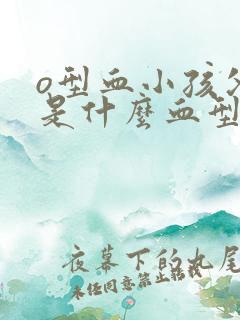 o型血小孩父
是什麼血型
夜幕下的九尾
未经同意禁止转载